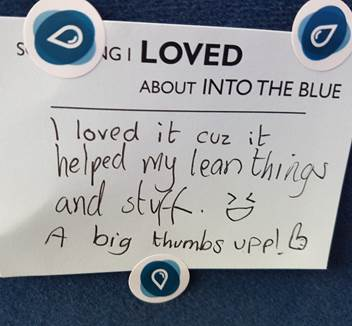 NG I LOVED
ABOUT INTO THE BLUE
I loved it cuz it
helped my learn things
and stuff.
A big thumbs upp!